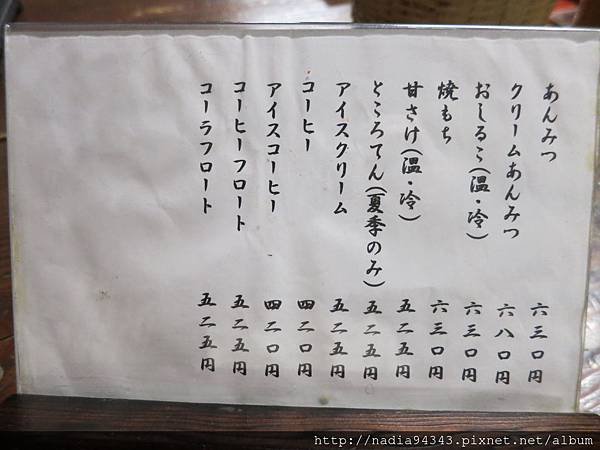 あんみつ 六三〇円
クリームあんみつ 六八〇円
おしるこ(温・冷) 六三〇円
焼もち 六三〇円
甘さけ(温・冷) 五二五円
ところてん(夏季のみ) 五二五円
アイスクリーム 五二五円
コーヒー 四二〇円
アイスコーヒー 四二〇円
コーヒーフロート 五二五円
コーラフロート 五二五円
http://nadia94343.pixnet.net/album